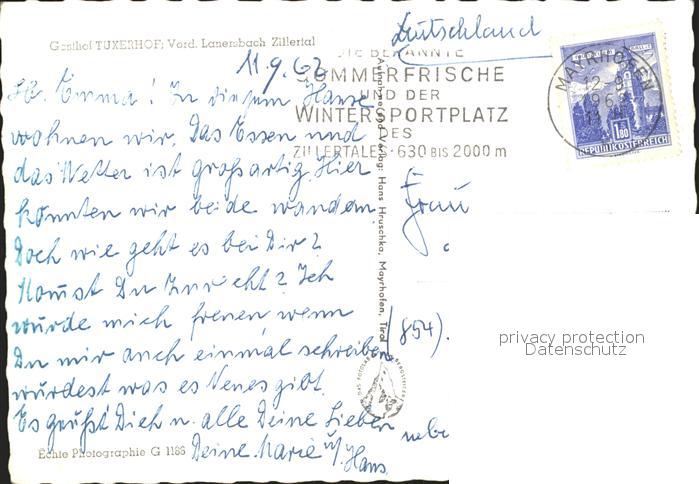 Gasthof TUXERHOF; Vord. Lanersbach Zillertal
11.9.62
Lb. Emma! In diesem Hause
wohnen wir. Das Essen und
das Wetter ist großartig. Hier
könnten wir beide wandern.
Doch wie geht es bei Dir?
Komst Du zurecht? Ich
würde mich freuen, wenn
Du mir auch einmal schreiben
würdest was es Neues gibt.
Es grüßt Dich u. alle Deine Lieben
Deine Marie u/ Hans.
Echte Photographie G 1186
Aufnahme und Verlag: Hans Hruschka, Mayrhofen, Tirol
Deutschland
DIE BEKANNTE
SOMMERFRISCHE
UND DER
WINTERSPORTPLATZ
DES
ZILLERTALES · 630 BIS 2000 m
MAYRHOFEN
12. 9.
1.80
REPUBLIK ÖSTERREICH
Frau
(854).
privacy protection
Datenschutz